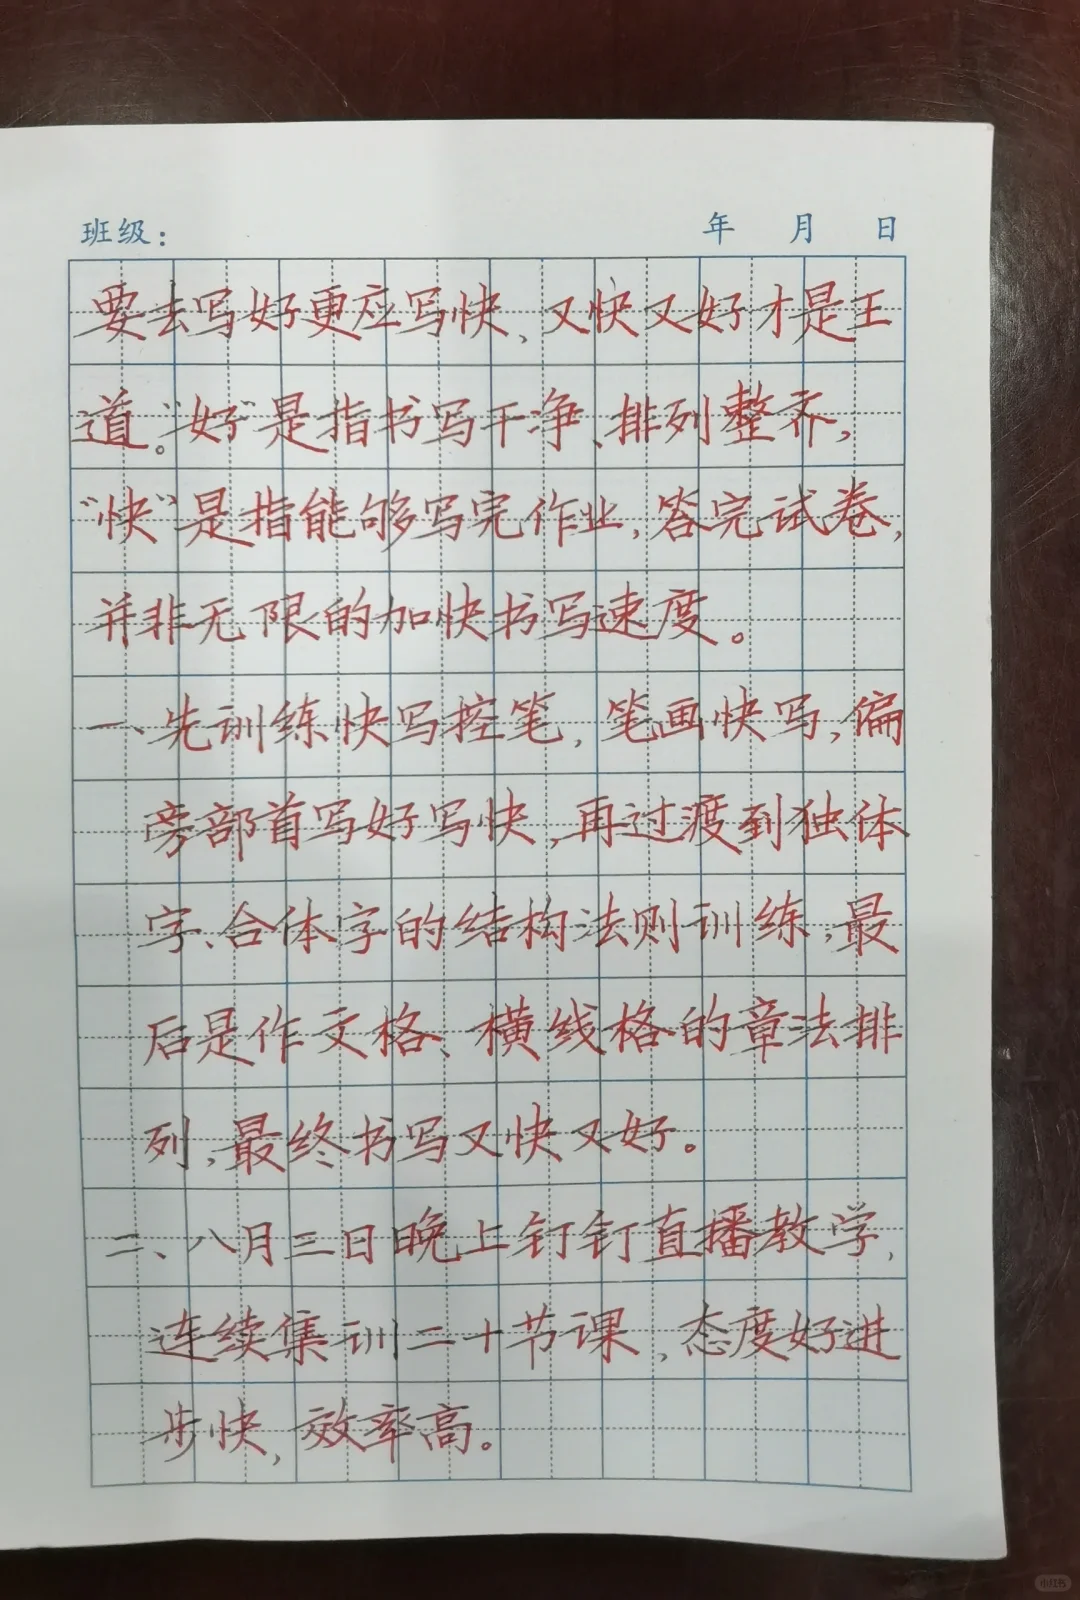 班级： 年 月 日
要去写好更应写快，又快又好才是王
道。“好”是指书写干净、排列整齐，
“快”是指能够写完作业，答完试卷，
并非无限的加快书写速度。
一、先训练快写控笔，笔画快写，偏
旁部首写好写快，再过渡到独体
字、合体字的结构法则训练，最
后是作文格、横线格的章法排
列，最终书写又快又好。
二、八月三日晚上钉钉直播教学，
连续集训二十节课，态度好进
步快，效率高。
小红书